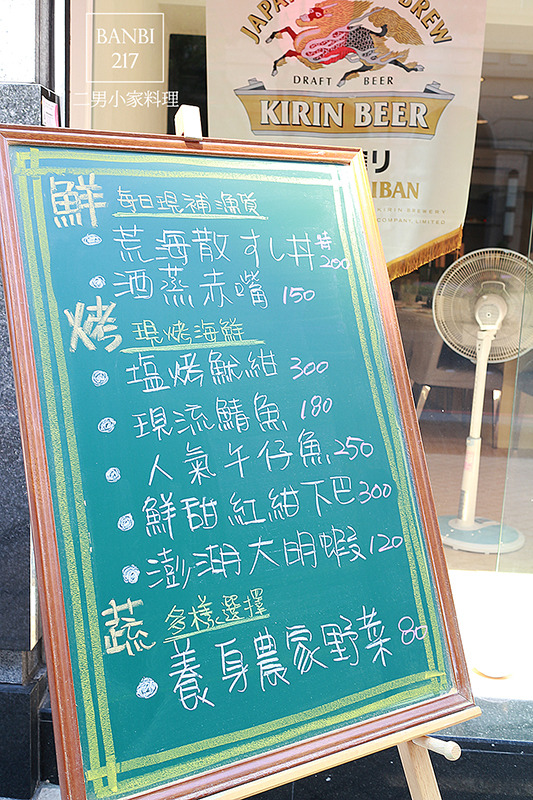 BANBI
217
二男小家料理
JAPAN
BREW
DRAFT BEER
KIRIN BEER
IBAN
KIRIN BREWERY
COMPANY, LIMITED
鮮 每日現補漁貨
荒海散すし丼 特200
酒蒸赤嘴 150
烤 現烤海鮮
塩烤魷紺 300
現流鯖魚 180
人氣午仔魚 250
鮮甜紅紺下巴 300
澎湖大明蝦 120
蔬 多樣選擇
養身農家野菜 80